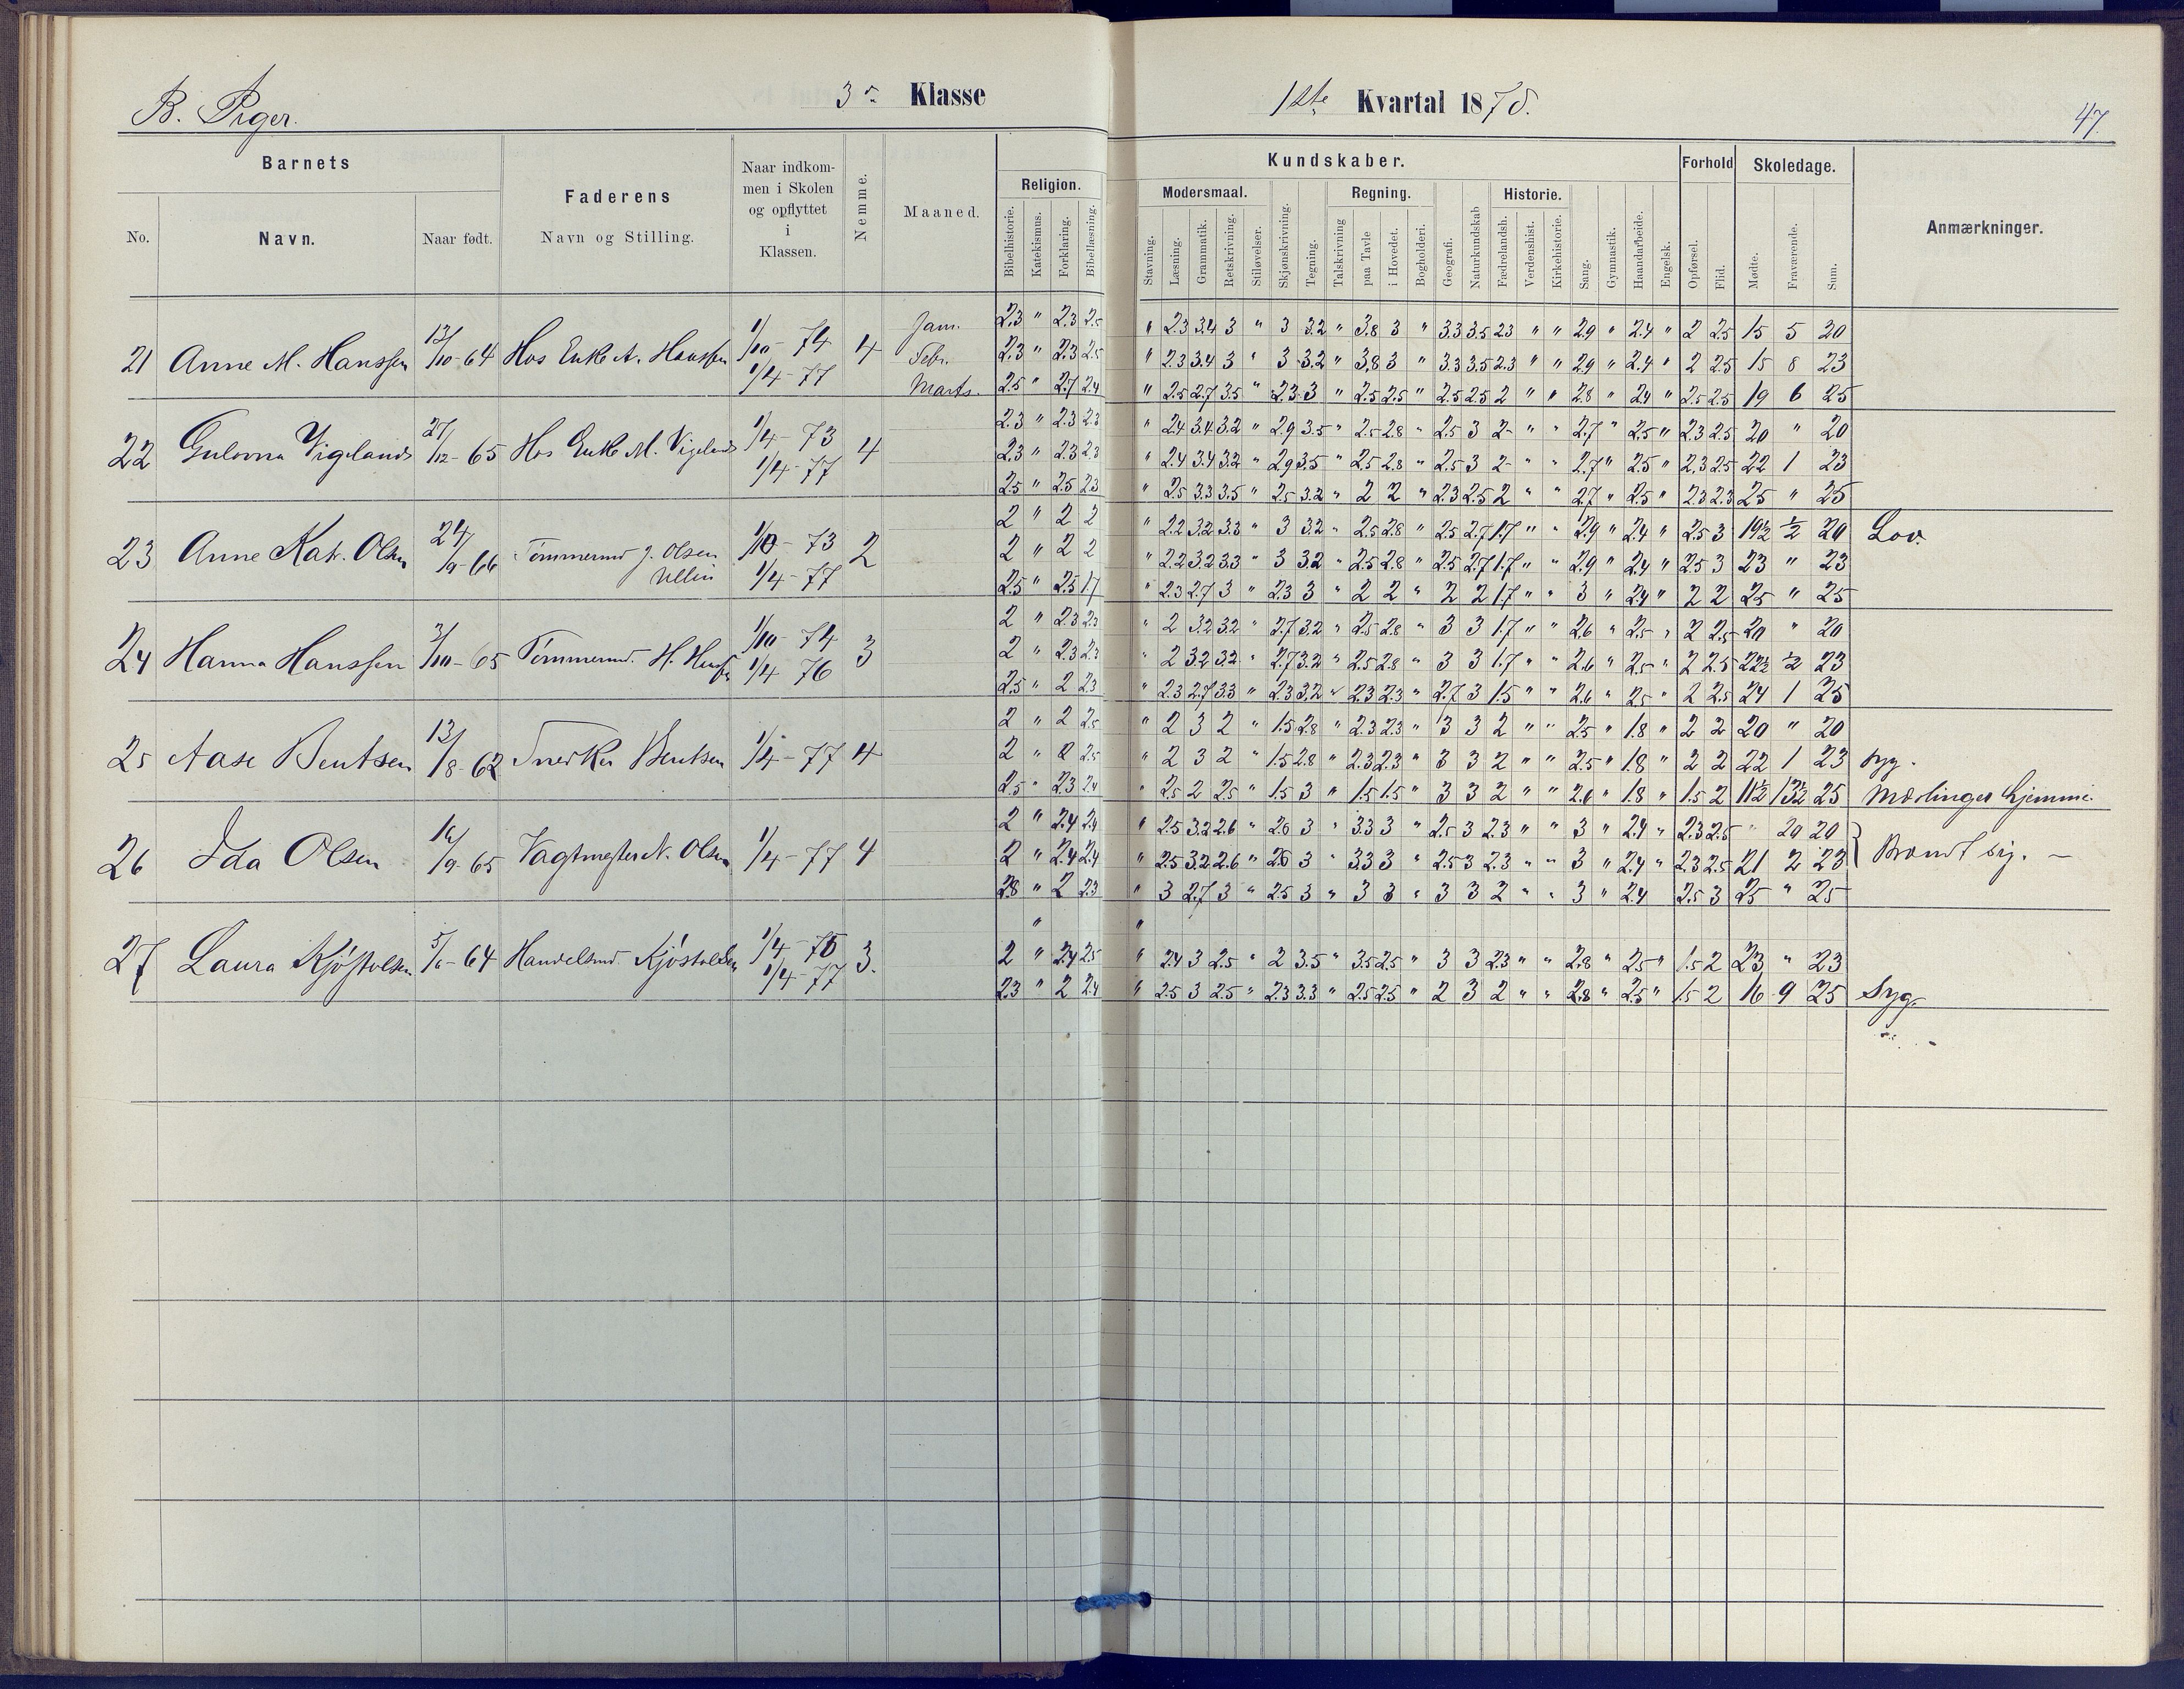 B. Piger.
3die Klasse
1ste Kvartal 1878.
47.
Barnets
No.
Navn.
Naar født.
Faderens
Navn og Stilling.
Naar indkom-
men i Skolen
og opflyttet
i
Klassen.
Nemme.
Maaned.
Kundskaber.
Religion.
Bibelhistorie.
Katekismus.
Forklaring.
Bibellæsning.
Modersmaal.
Stavning.
Læsning.
Grammatik.
Retskrivning.
Stiløvelser.
Skjønskrivning.
Tegning.
Regning.
Talskrivning
paa Tavle
i Hovedet.
Bogholderi.
Geografi.
Naturkundskab
Historie.
Fædrelandsh.
Verdenshist.
Kirkehistorie.
Sang.
Gymnastik.
Haandarbeide.
Engelsk.
Forhold
Opførsel.
Flid.
Skoledage.
Mødte.
Fraværende.
Sum.
Anmærkninger.
21 Anne M. Hanssen 13/10-64 Hos Enke A. Hanssen 1/10-74 1/4-77 4
Jan. 2.3 " 2.3 2.5 " 2.3 3.4 3 " 3 3.2 " 3.8 3 " 3.3 3.5 2.3 " " 2.9 " 2.4 " 2 2.5 15 5 20
Febr. 2.3 " 2.3 2.5 " 2.3 3.4 3 " 3 3.2 " 3.8 3 " 3.3 3.5 2.3 " " 2.9 " 2.4 " 2 2.5 15 8 23
Marts. 2.5 " 2.7 2.4 " 2.5 2.7 3.5 " 2.3 3 " 2.5 2.5 " 2.5 2.5 2 " " 2.8 " 2.4 " 2.5 2.5 19 6 25
22 Gulovna Vigelands 27/12-65 Hos Enke M. Vigelands 1/4-73 1/4-77 4
2.3 " 2.3 2.3 " 2.4 3.4 3.2 " 2.9 3.5 " 2.5 2.8 " 2.5 3 2 " " 2.7 " 2.5 " 2.3 2.5 20 " 20
2.3 " 2.3 2.3 " 2.4 3.4 3.2 " 2.9 3.5 " 2.5 2.8 " 2.5 3 2 " " 2.7 " 2.5 " 2.3 2.5 22 1 23
2.5 " 2.5 2.3 " 2.5 3.3 3.5 " 2.5 3.2 " 2 2 " 2.3 2.5 2 " " 2.7 " 2.5 " 2.3 2.3 25 " 25
23 Anne Kat. Olsen 24/9-66 Tømmermd J. Olsen 1/10-73 1/4-77 2
2 " 2 2 " 2.2 3.2 3.3 " 3 3.2 " 2.5 2.8 " 2.5 2.7 1.7 " " 2.9 " 2.4 " 2.5 3 19½ ½ 20 Lov.
2 " 2 2 " 2.2 3.2 3.3 " 3 3.2 " 2.5 2.8 " 2.5 2.7 1.7 " " 2.9 " 2.4 " 2.5 3 23 " 23
2.5 " 2.5 1.7 " 2.3 2.7 3 " 2.3 3 " 2 2 " 2 2 1.7 " " 3 " 2.4 " 2 2 25 " 25
24 Hanna Hanssen 3/10-65 Tømmermd. H. Hanss 1/10-74 1/4 76 3
2 " 2.3 2.3 " 2 3.2 3.2 " 2.7 3.2 " 2.5 2.8 " 3 3 1.7 " " 2.6 " 2.5 " 2 2.5 20 " 20
2 " 2.3 2.3 " 2 3.2 3.2 " 2.7 3.2 " 2.5 2.8 " 3 3 1.7 " " 2.6 " 2.5 " 2 2.5 22½ ½ 23
2.5 " 2 2.3 " 2.3 2.7 3.3 " 2.3 3.2 " 2.3 2.3 " 2.7 3 1.5 " " 2.6 " 2.5 " 2 2.5 24 1 25
25 Aase Bentsen 13/8-62 Snedker Bentsen 1/4-77 4
2 " 2 2.5 " 2 3 2 " 1.5 2.8 " 2.3 2.3 " 3 3 2 " " 2.5 " 1.8 " 2 2 20 " 20
2 " 2 2.5 " 2 3 2 " 1.5 2.8 " 2.3 2.3 " 3 3 2 " " 2.5 " 1.8 " 2 2 22 1 23 Syg.
2.5 " 2.3 2.4 " 2.5 2 2.5 " 1.5 3 " 1.5 1.5 " 3 3 2 " " 2.6 " 1.8 " 1.5 2 11½ 13½ 25 Mæslinger hjemme.
26 Ida Olsen 16/9-65 Vagtmester N. Olsen 1/4-77 4
2 " 2.4 2.4 " 2.5 3.2 2.6 " 2.6 3 " 3.3 3 " 2.5 3 2.3 " " 3 " 2.4 " 2.3 2.5 " 20 20
2 " 2.4 2.4 " 2.5 3.2 2.6 " 2.6 3 " 3.3 3 " 2.5 3 2.3 " " 3 " 2.4 " 2.3 2.5 21 2 23
2.8 " 2 2.3 " 3 2.7 3 " 2.5 3 " 3 3 " 3 3 2 " " 3 " 2.4 2.5 3 25 " 25
27 Laura Kjøstolsen 5/6-64 Handelsmd. Kjøstolsen 1/4-75 1/4-77 3.
" "
2 " 2.4 2.5 " 2.4 3 2.5 " 2 3.5 " 3.5 2.5 " 3 3 2.3 " " 2.8 " 2.5 " 1.5 2 23 " 23
2.3 " 2 2.4 " 2.5 3 2.5 " 2.3 3.3 " 2.5 2.5 " 2 3 2 " " 2.8 " 2.5 " 1.5 2 16 9 25 Syg.